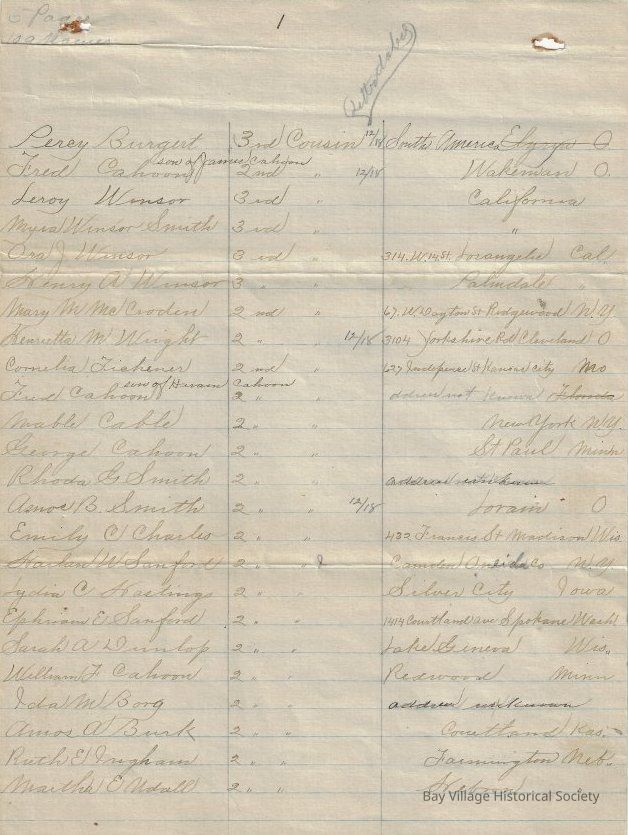 5 Pages
109 Names
1
Percy Burgert 3rd Cousin 12/18 South America Elyria O.
son of James Cahoon
Fred Cahoon 2nd " 12/18 Wakeman O.
Leroy Winsor 3rd " California
Myra Winsor Smith 3rd " "
Ora J Winsor 3rd " 314. W. 14 St. Losangelie Cal.
Henry A Winsor 3 " " Palmdale "
Mary M McCrooden 2nd " 67. W Dayton St Ridgewood N.Y.
Henrietta M Wright 2 " 12/18 3104 Yorkshire Rd Cleveland O
Cornelia Fishener 2nd " 627 Indepense St Kansas City Mo
son of Havain Cahoon
Fred Cahoon 2 " " address not known Florida
Mable Cable 2 " " New York N.Y.
George Cahoon 2 " " St Paul Minn
Rhoda G Smith 2 " " address unknown
Amos B. Smith 2 " " 12/18 Lorain O
Emily C Charles 2 " " 432 Francis St Madison Wis
Harlan W Sanford 2 " " Camden Oneida Co N.Y.
Lydia C Hastings 2 " " Silver City Iowa
Ephriam E Sanford 2 " " 1414 Courtland ave Spokane Wash
Sarah A Dunlop 2 " " Lake Geneva Wis.
William F Cahoon 2 " " Redwood Minn
Ida M Borg 2 " " address unknown
Amos A Burk 2 " " Courtland Kas.
Ruth E Ingham 2 " " Farmington Neb.
Martha E Udall 2 " "
Bay Village Historical Society